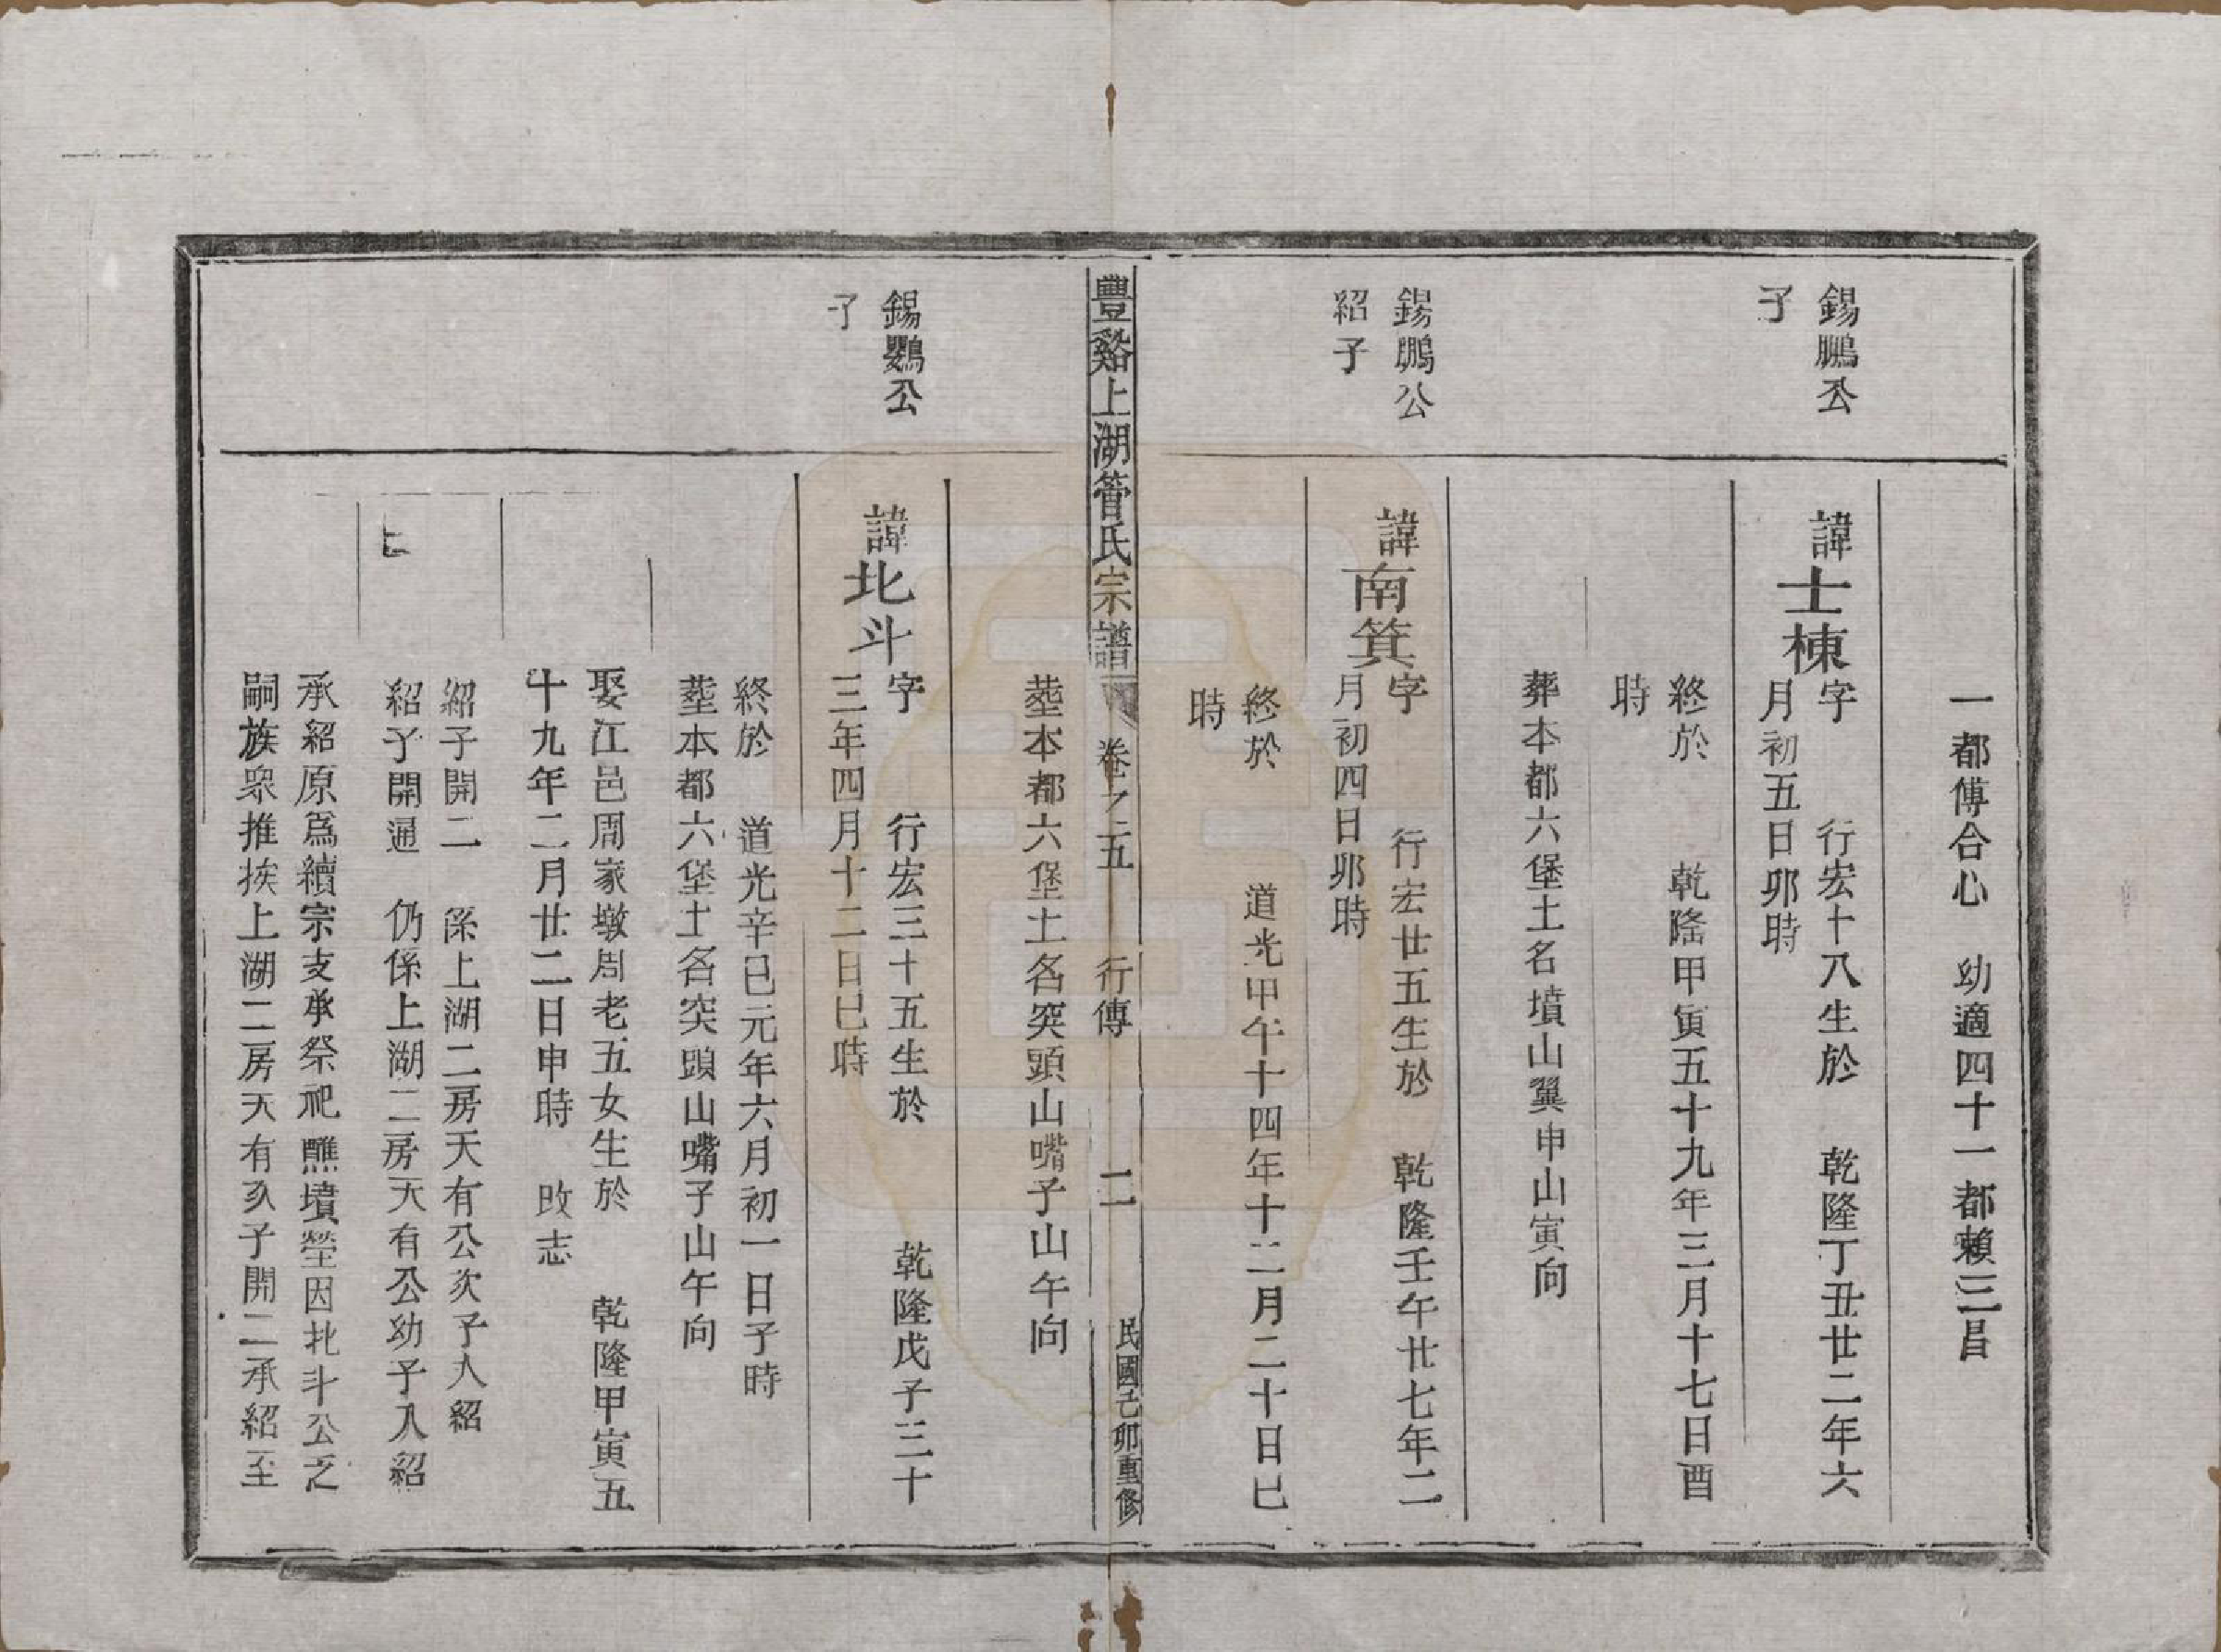 一都傅合心　幼適四十一都賴三昌
錫鵬公
子
諱士棟字　行宏十八生於　乾隆丁丑廿二年六
月初五日卯時
終於　乾隆甲寅五十九年三月十七日酉
時
葬本都六堡土名墳山翼申山寅向
錫鵬公
紹子
諱南箕字　行宏廿五生於　乾隆壬午廿七年二
月初四日卯時
終於　道光甲午十四年十二月二十日巳
時
塟本都六堡土名突頭山嘴子山午向
豐谿上湖管氏宗譜　卷之五　行傳　二　民國己卯重修
錫鸚公
子
諱北斗字　行宏三十五生於　乾隆戊子三十
三年四月十二日巳時
終於　道光辛巳元年六月初一日子時
塟本都六堡土名突頭山嘴子山午向
娶江邑周家墩周老五女生於　乾隆甲寅五
十九年二月廿二日申時　改志
紹子開二　係上湖二房天有公次子入紹
紹子開通　仍係上湖二房天有公幼子入紹
承紹原爲續宗支承祭祀醮墳塋因北斗公乏
嗣族眾推挨上湖二房天有次子開二承紹至